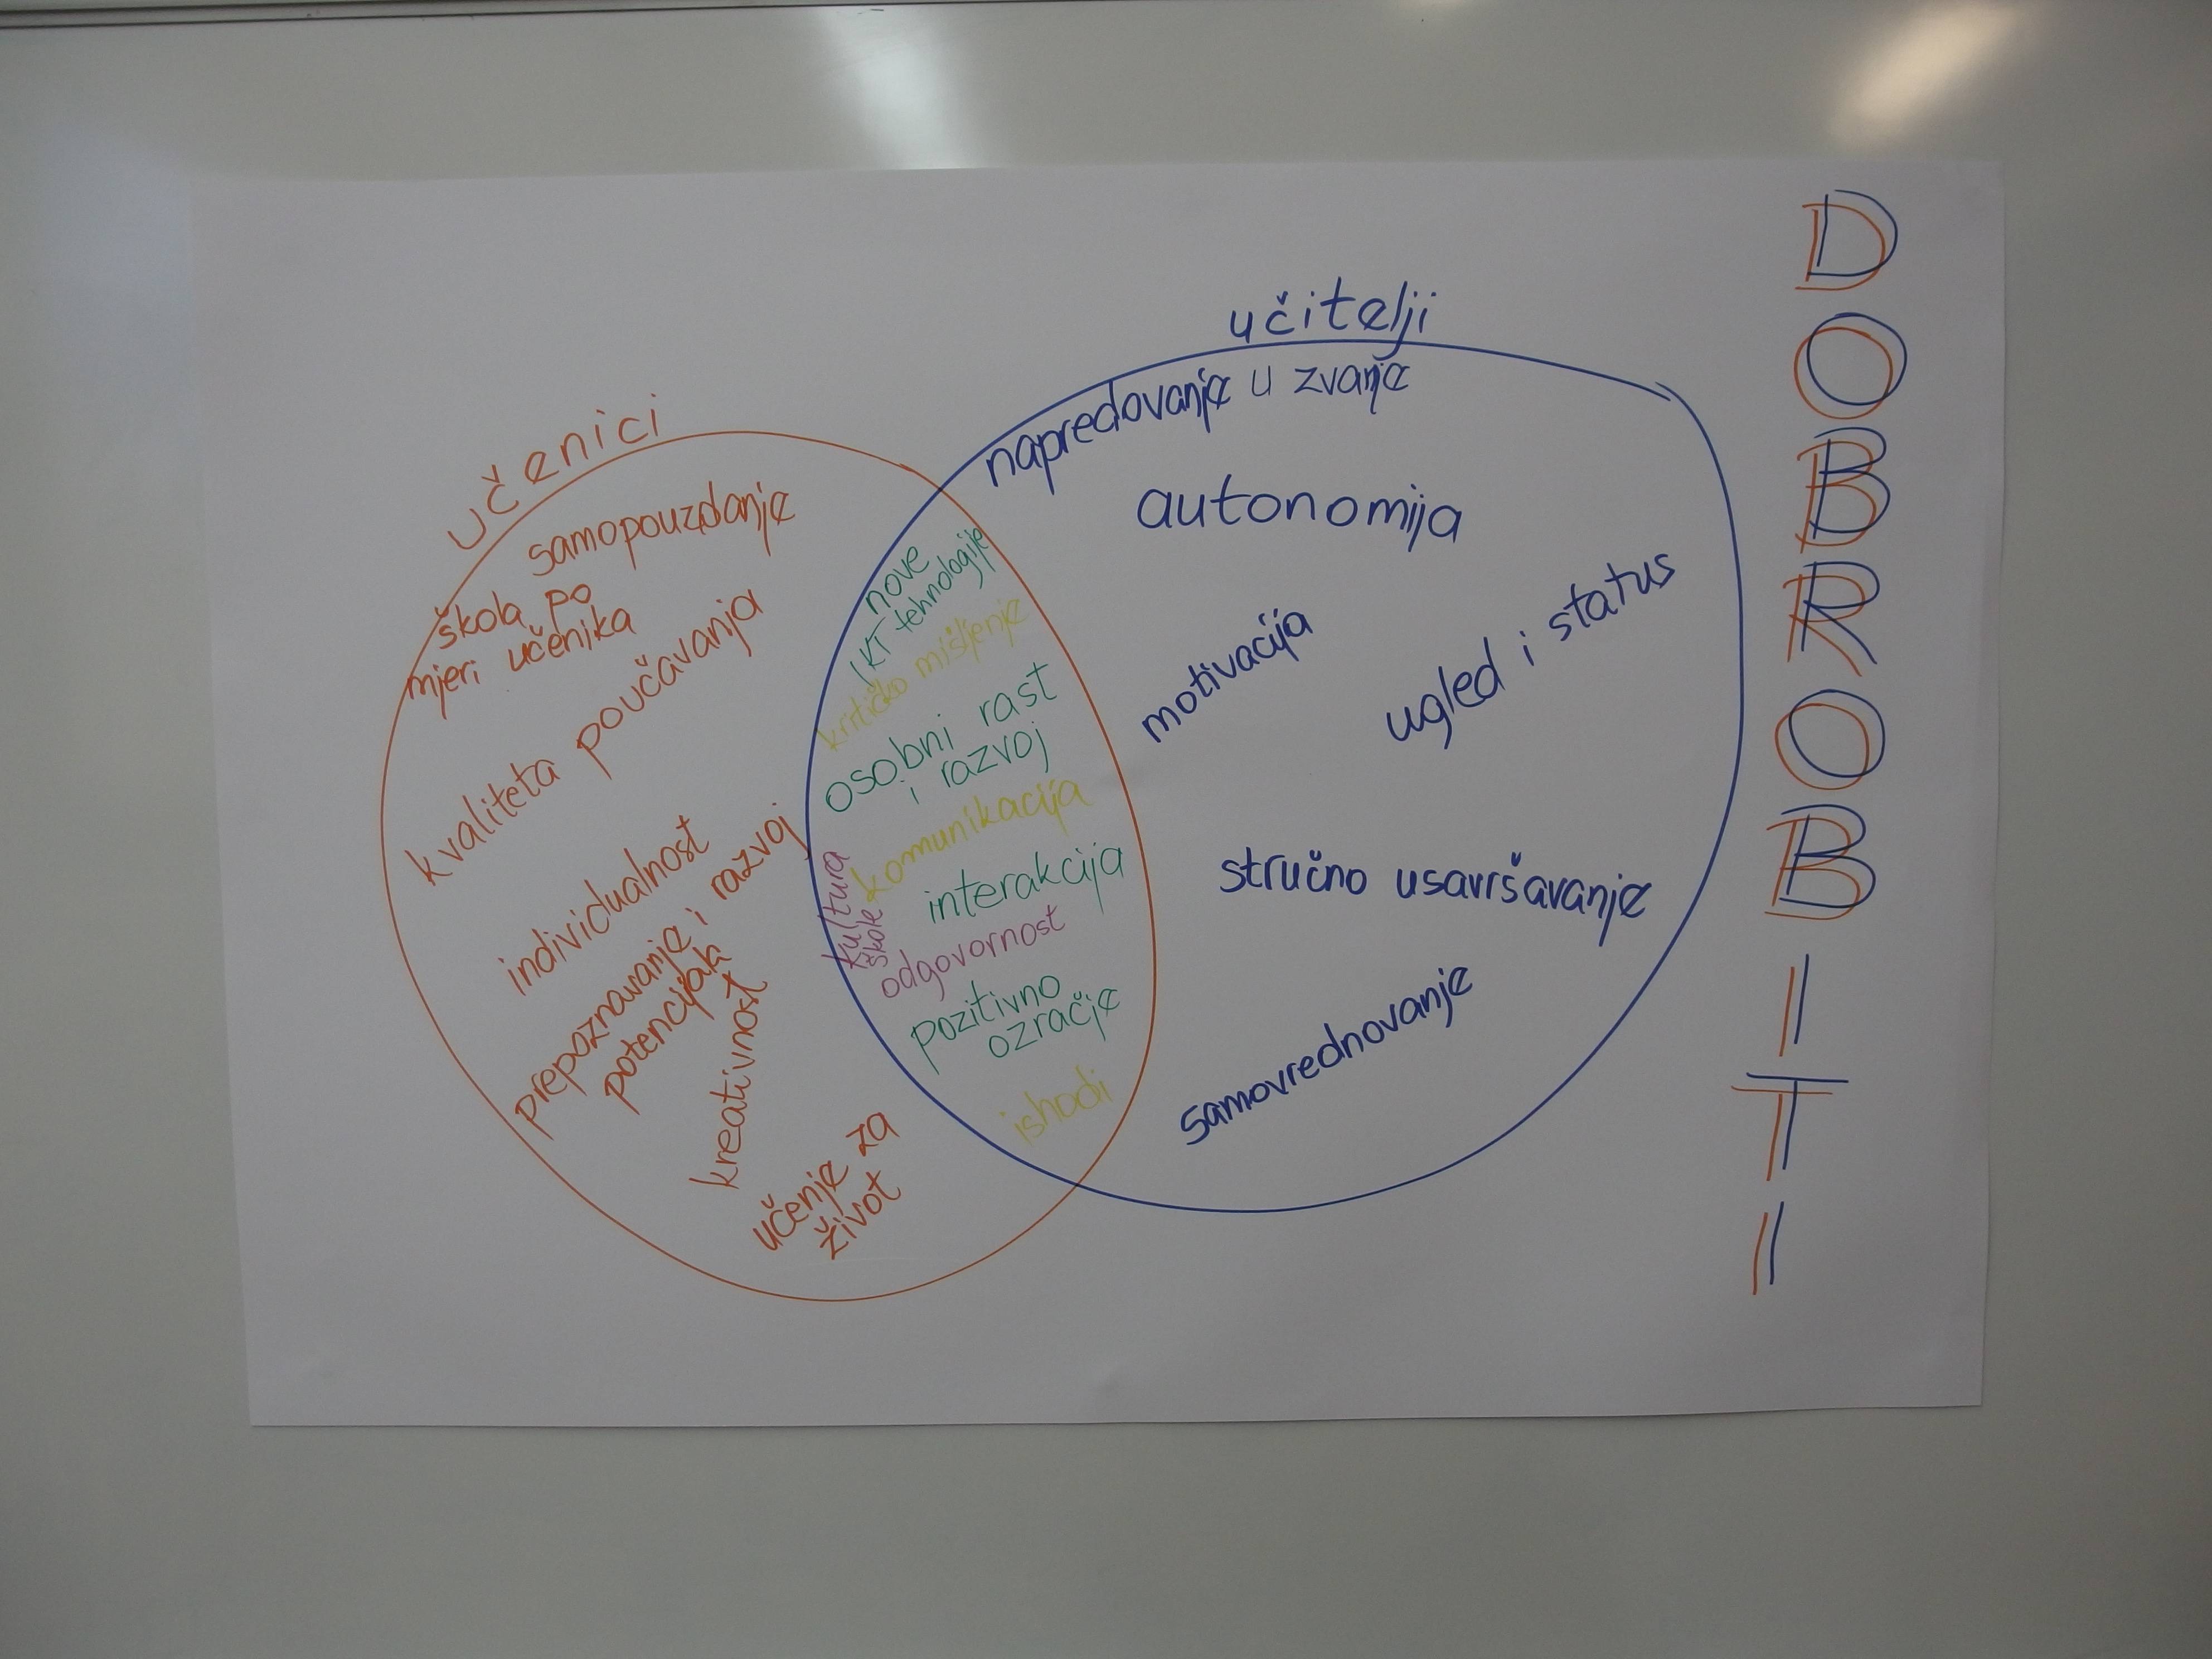 učenici
samopouzdanje
škola po
mjeri učenika
kvaliteta poučavanja
individualnost
prepoznavanje i razvoj
potencijala
kreativnost
učenje za
život
nove
IKT tehnologije
kritičko mišljenje
osobni rast
i razvoj
komunikacija
kultura
škole
interakcija
odgovornost
pozitivno
ozračje
ishodi
učitelji
napredovanje u zvanje
autonomija
motivacija
ugled i status
stručno usavršavanje
samovrednovanje
DOBROBITI